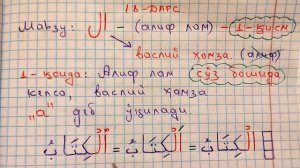 18-ДАРС
Мавзу: اَلْ - (алиф лам) - 1-қисм
васлий ҳамза (алиф)
1-қоида: Алиф лам сўз бошида
келса, васлий ҳамза
„а” деб ўқилади.
اَلْكِتَابُ = اَلْكِتَابُ = اَلْكِتَابُ